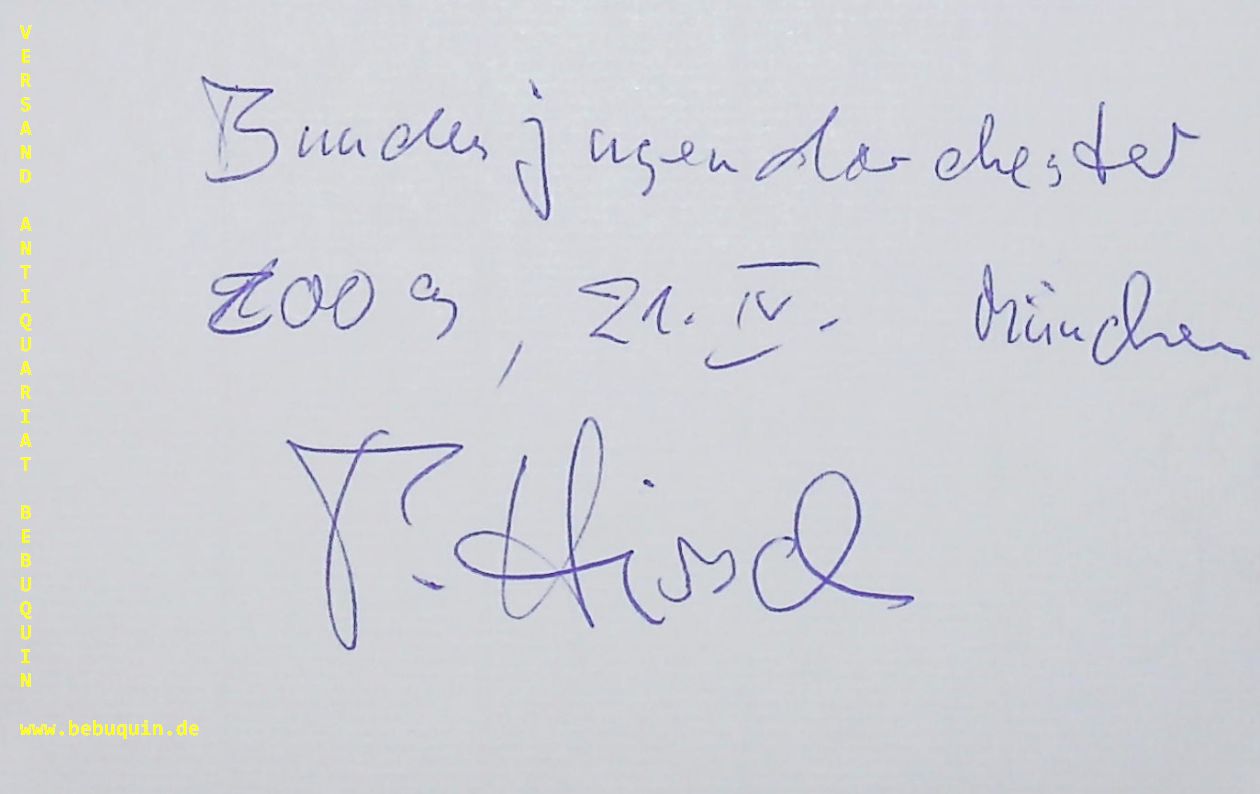 VERSAND ANTIQUARIAT BEBUQUIN
Bundesjugendorchester
2009, 21. IV. München
P. Hirsch
www.bebuquin.de